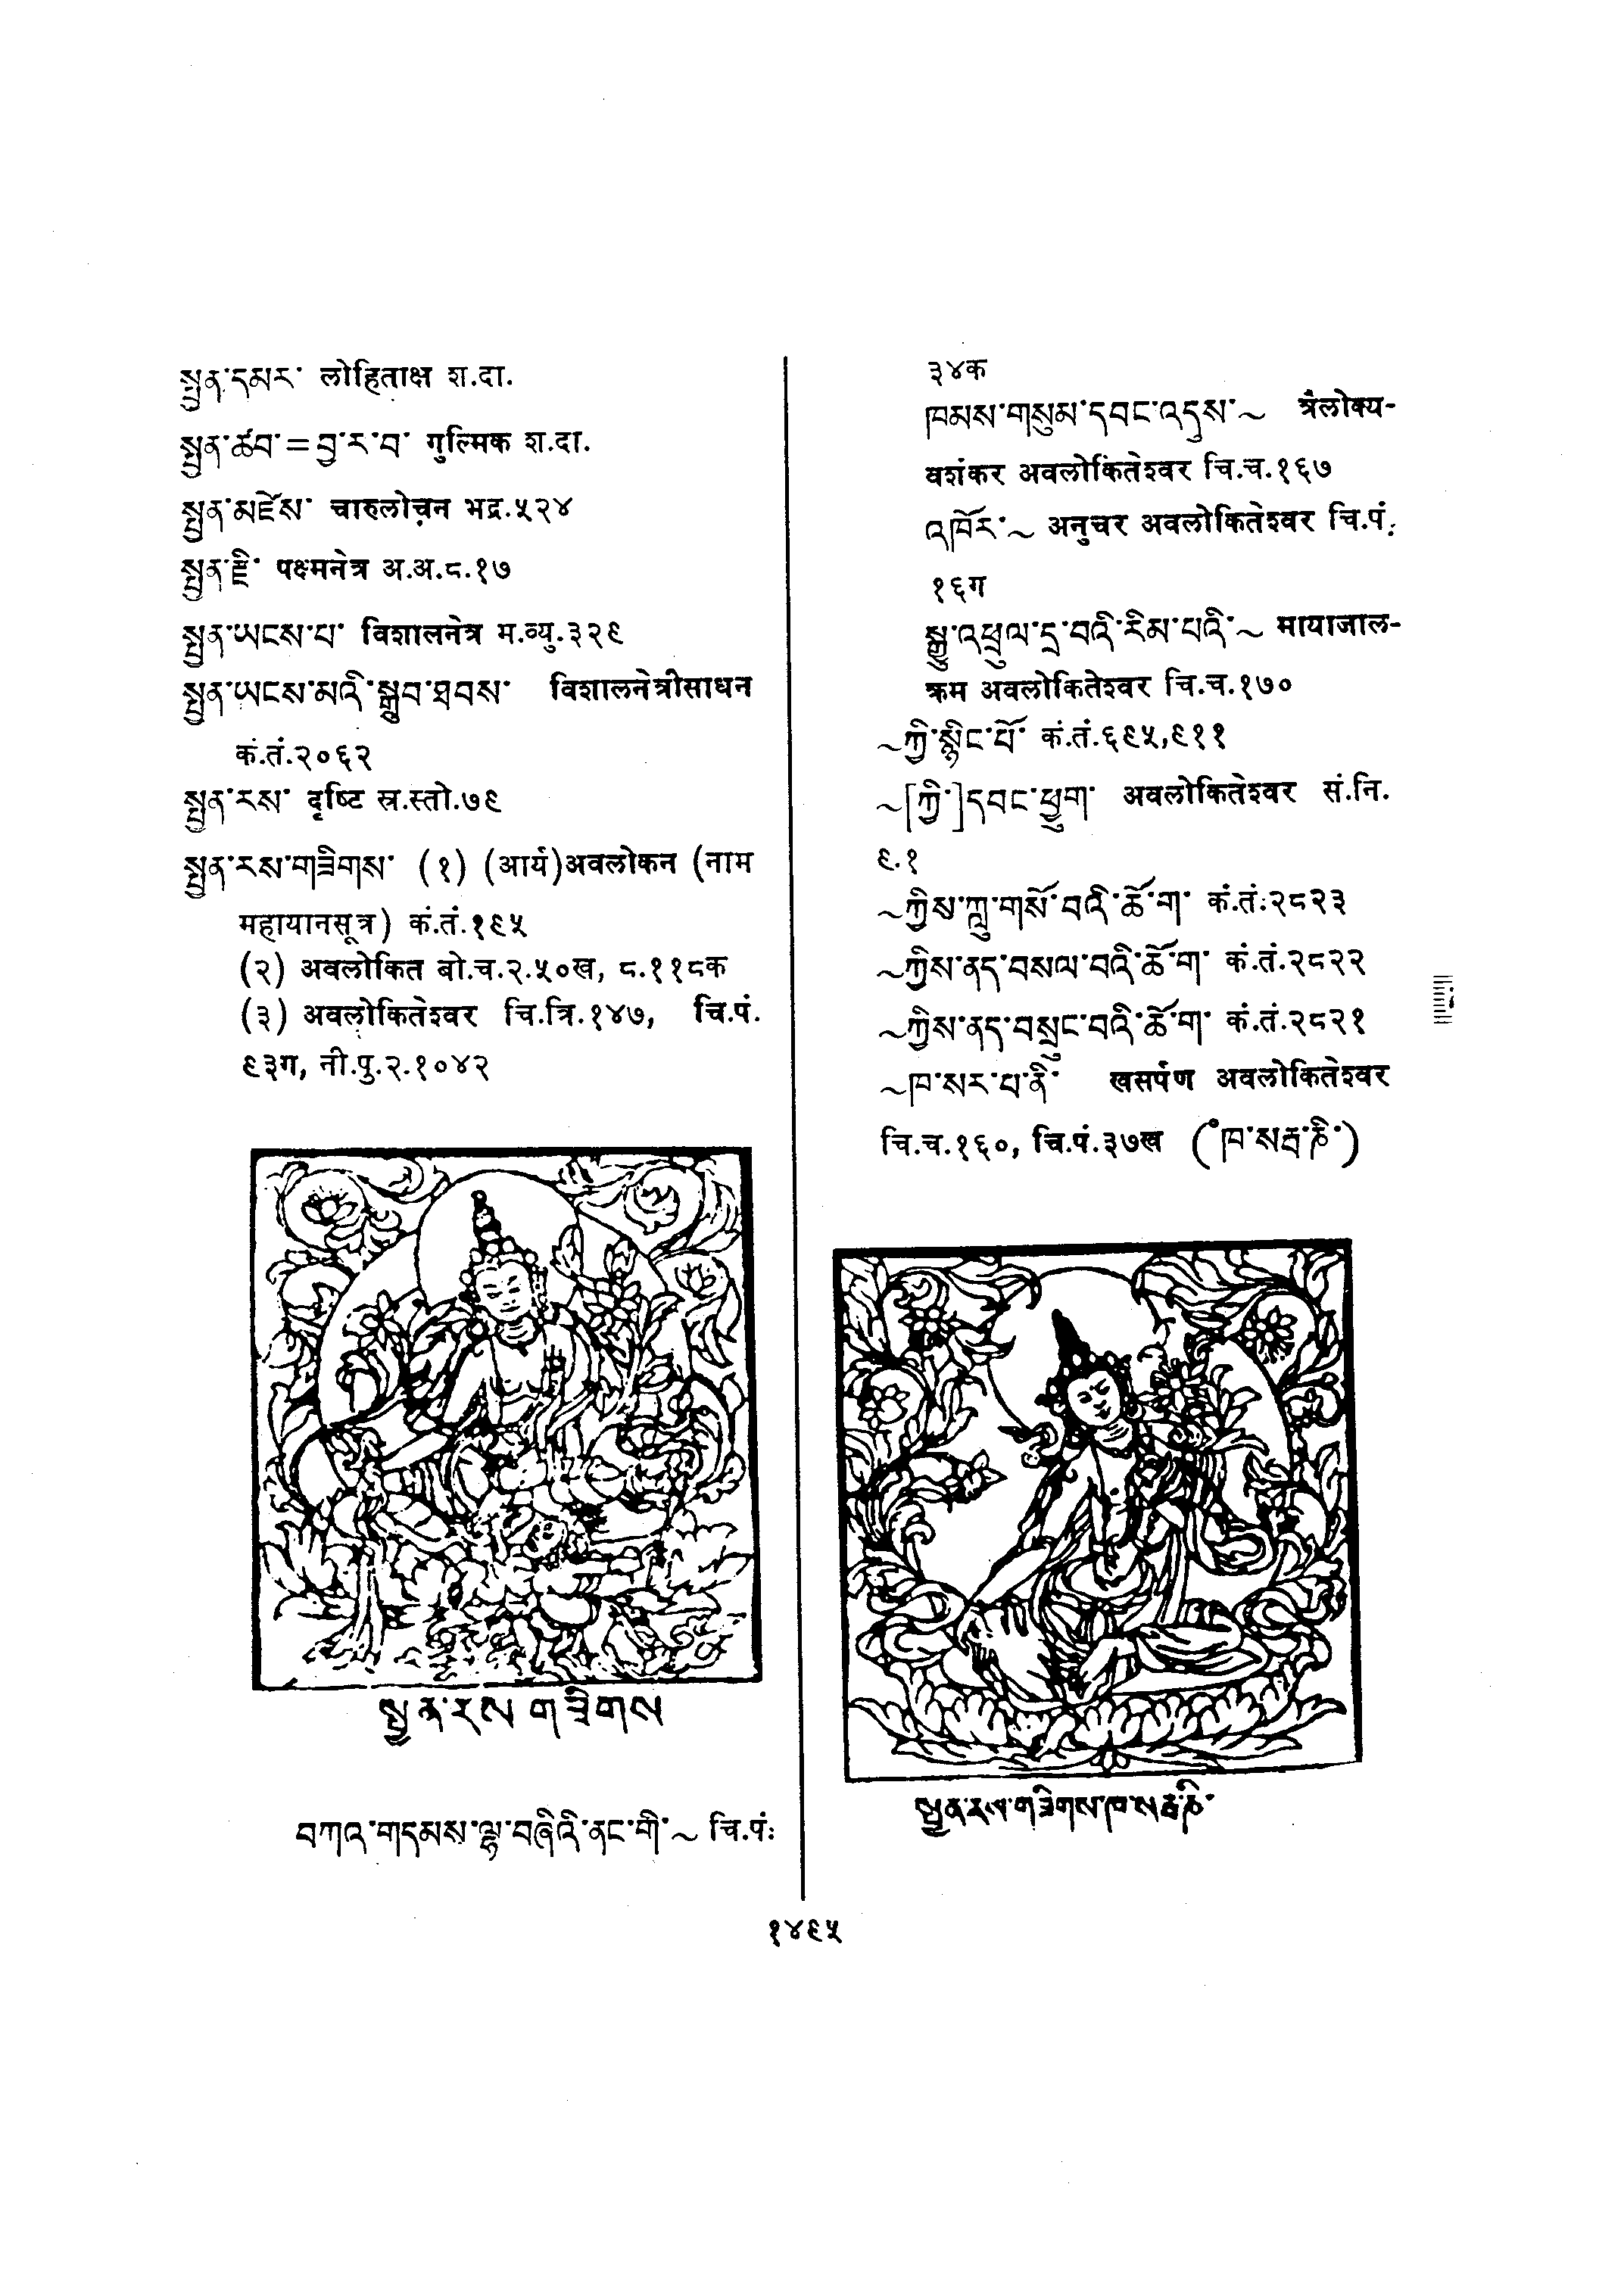 སྤྱན་དམར་ लोहिताक्ष श.दा.
སྤྱན་ཚབ་=བྱ་ར་བ་ गुल्मिक श.दा.
སྤྱན་མཛེས་ चारुलोचन भद्र.५२४
སྤྱན་རྫི་ पक्ष्मनेत्र अ.अ.८.१७
སྤྱན་ཡངས་པ་ विशालनेत्र म.व्यु.३२९
སྤྱན་ཡངས་མའི་སྒྲུབ་ཐབས་ विशालनेत्रीसाधन
कं.तं.२०६२
སྤྱན་རས་ दृष्टि स्र.स्तो.७९
སྤྱན་རས་གཟིགས་ (१) (आर्य)अवलोकन (नाम
महायानसूत्र) कं.तं.१९५
(२) अवलोकित बो.च.२.५०ख, ८.११८क
(३) अवलोकितेश्वर चि.त्रि.१४७, चि.पं.
९३ग, नी.पु.२.१०४२
སྤྱན་རས་གཟིགས
བཀའ་གདམས་ལྷ་བཞིའི་ནང་གི་~ चि.पं.
३४क
ཁམས་གསུམ་དབང་འདུས་~ त्रैलोक्य-
वशंकर अवलोकितेश्वर चि.च.१६७
འཁོར་~ अनुचर अवलोकितेश्वर चि.पं.
१६ग
སྒྱུ་འཕྲུལ་དྲ་བའི་རིམ་པའི་~ मायाजाल-
क्रम अवलोकितेश्वर चि.च.१७०
~ཀྱི་སྙིང་པོ་ कं.तं.६९५,९११
~[ཀྱི་]དབང་ཕྱུག་ अवलोकितेश्वर सं.नि.
९.१
~ཀྱིས་ཀླུ་གསོ་བའི་ཆོ་ག་ कं.तं.२८२३
~ཀྱིས་ནད་བསལ་བའི་ཆོ་ག་ कं.तं.२८२२
~ཀྱིས་ནད་བསྲུང་བའི་ཆོ་ག་ कं.तं.२८२१
~ཁ་སར་པ་ནི་ खसर्पण अवलोकितेश्वर
चि.च.१६०, चि.पं.३७ख (°ཁ་སརྦ་ཎི་)
སྤྱན་རས་གཟིགས་ཁ་སརྦ་ཎི་
१४९५